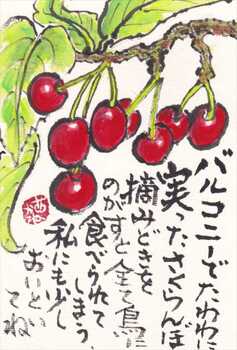 バルコニーでたわわに
実ったさくらんぼ
摘みどきを
のがすと全て鳥に
食べられて
しまう
私にも少し
おいとい
てね